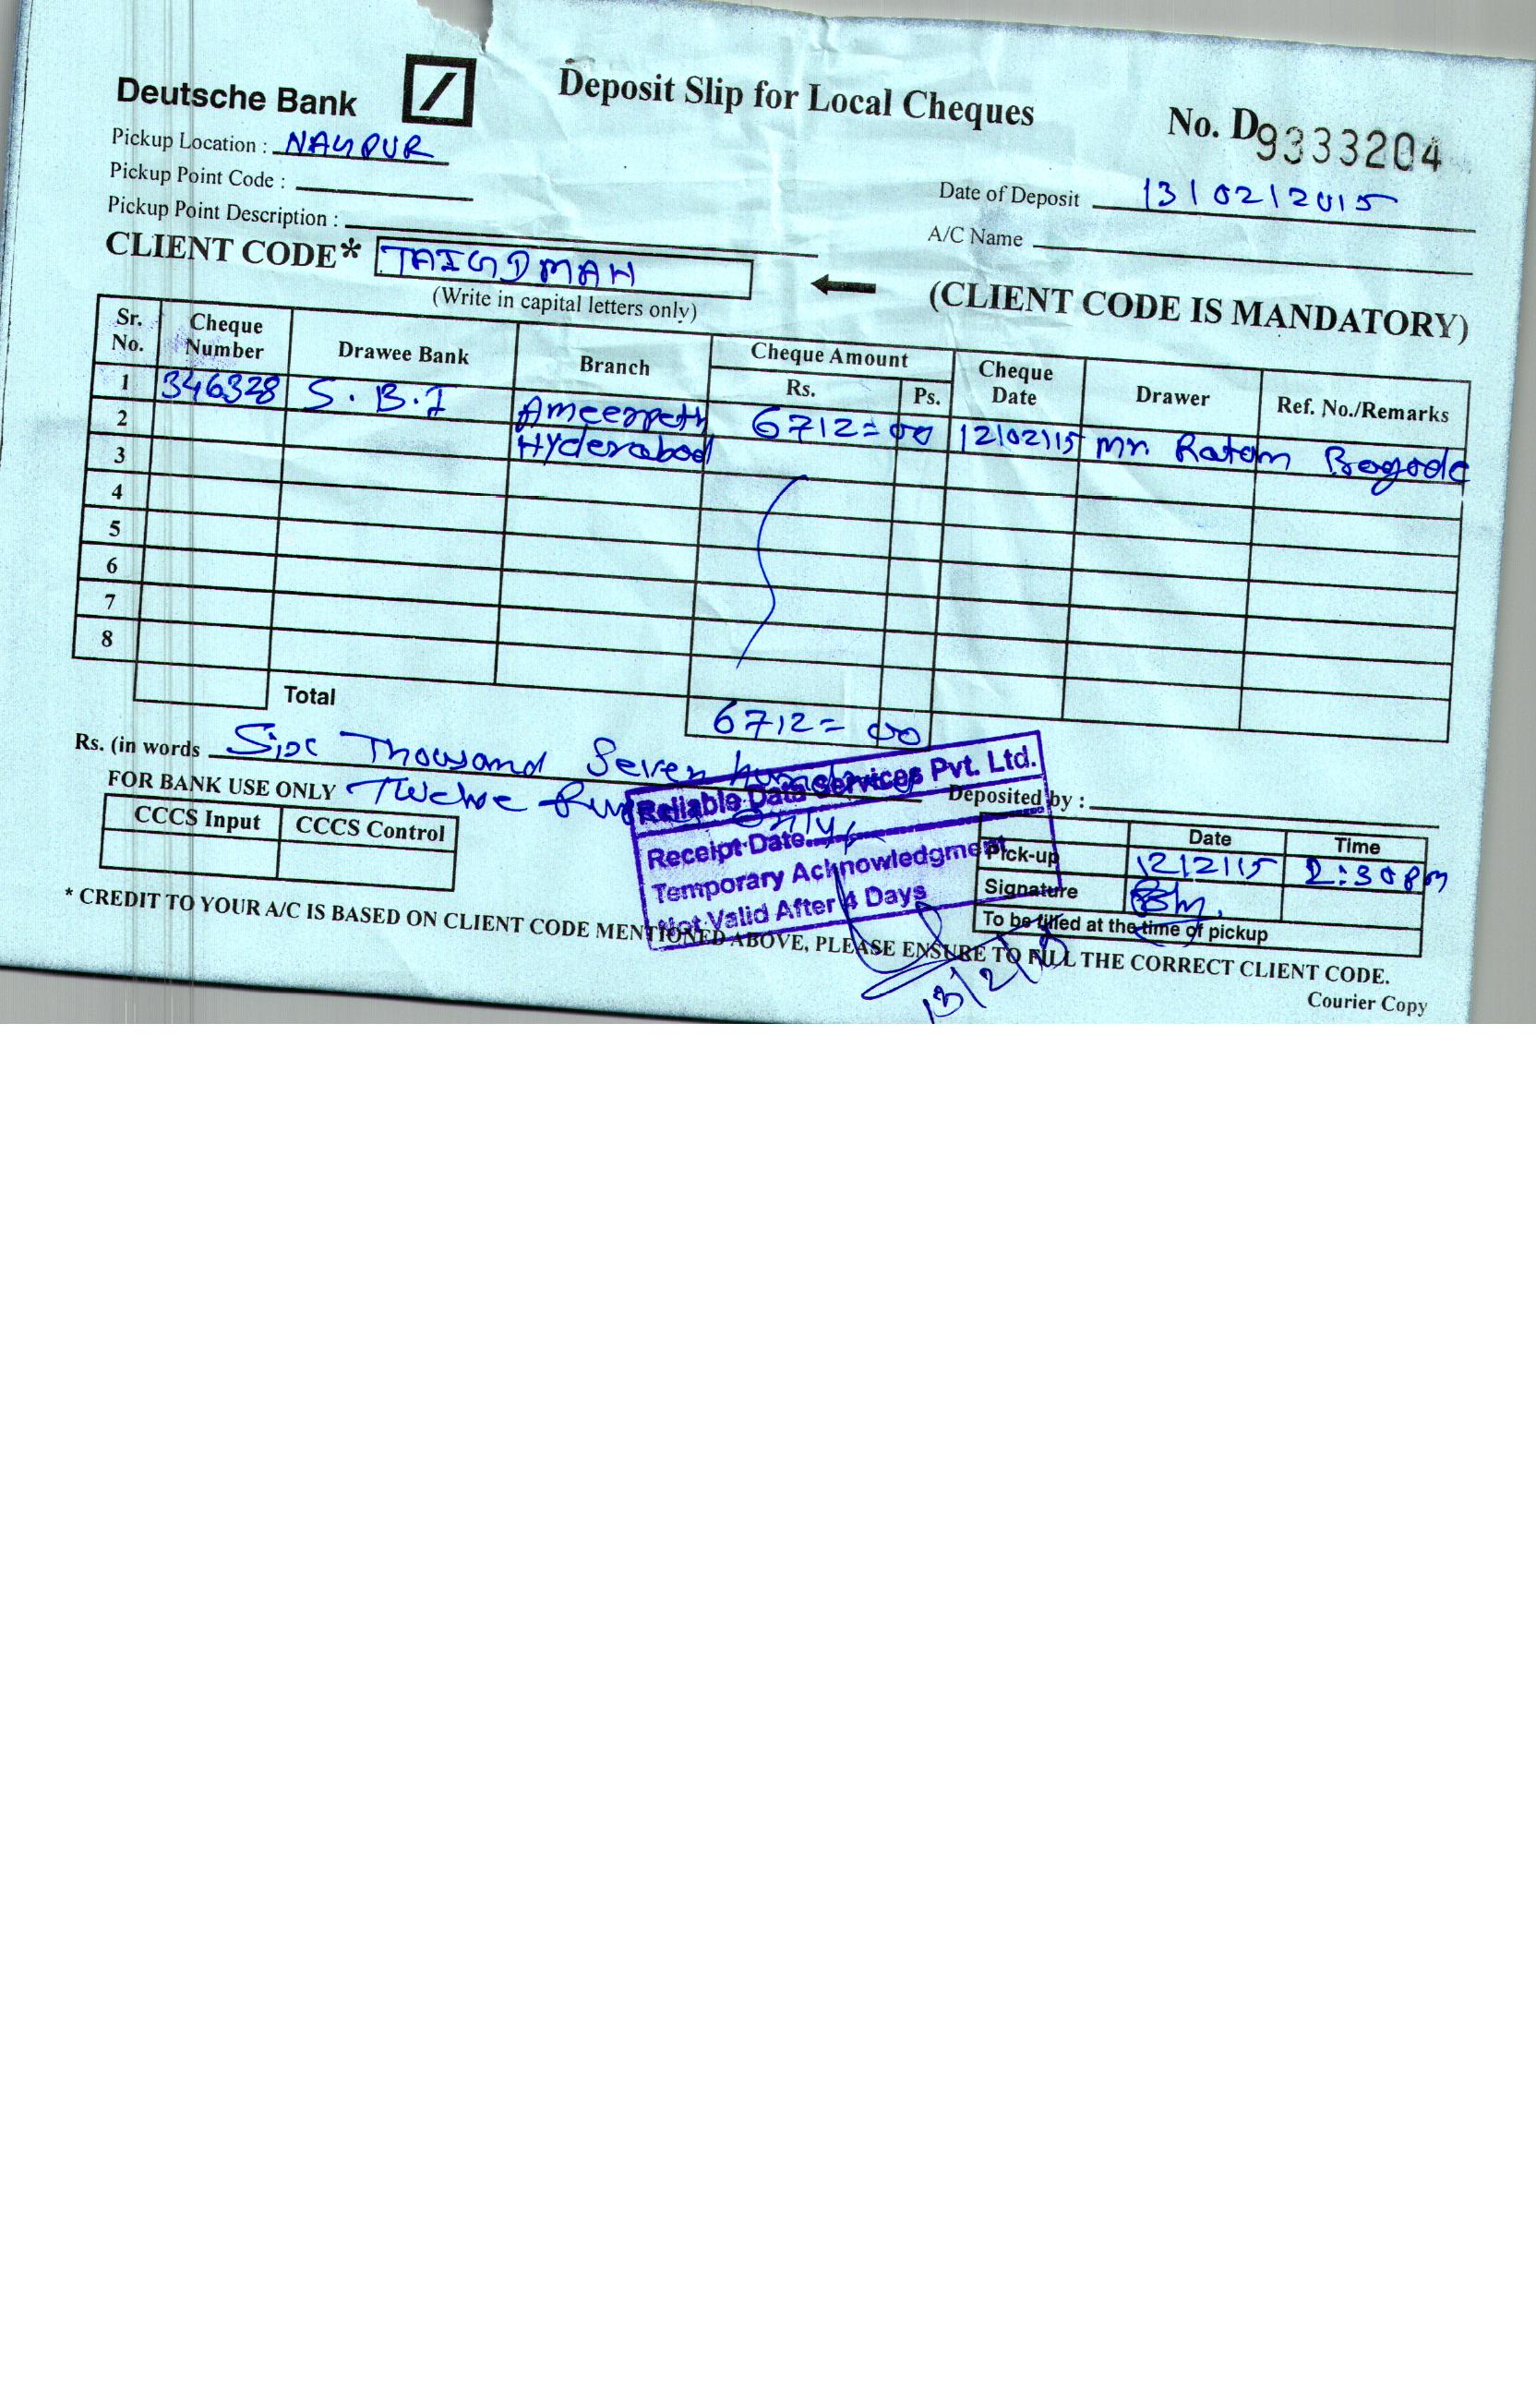 Deutsche Bank
Deposit Slip for Local Cheques
No. D9333204
Pickup Location : NAGPUR
Pickup Point Code :
Date of Deposit 13/02/2015
Pickup Point Description :
A/C Name
CLIENT CODE* TAIGDMAH
(Write in capital letters only)
(CLIENT CODE IS MANDATORY)
Sr. No. Cheque Number Drawee Bank Branch Cheque Amount Rs. Ps. Cheque Date Drawer Ref. No./Remarks
1 346328 S.B.I Ameerpeth 6712=00 12/02/15 Mr. Ratan Bagode
2 Hyderabad
3
4
5
6
7
8
Total 6712=00
Rs. (in words Six Thousand Seven hundred
FOR BANK USE ONLY Twelve only
Deposited by :
CCCS Input CCCS Control
Reliable Data Services Pvt. Ltd.
Receipt Date
Temporary Acknowledgment
Not Valid After 4 Days
Date Time
Pick-up 12/2/15 2:30pm
Signature
To be filled at the time of pickup
13/2/15
* CREDIT TO YOUR A/C IS BASED ON CLIENT CODE MENTIONED ABOVE, PLEASE ENSURE TO FILL THE CORRECT CLIENT CODE.
Courier Copy